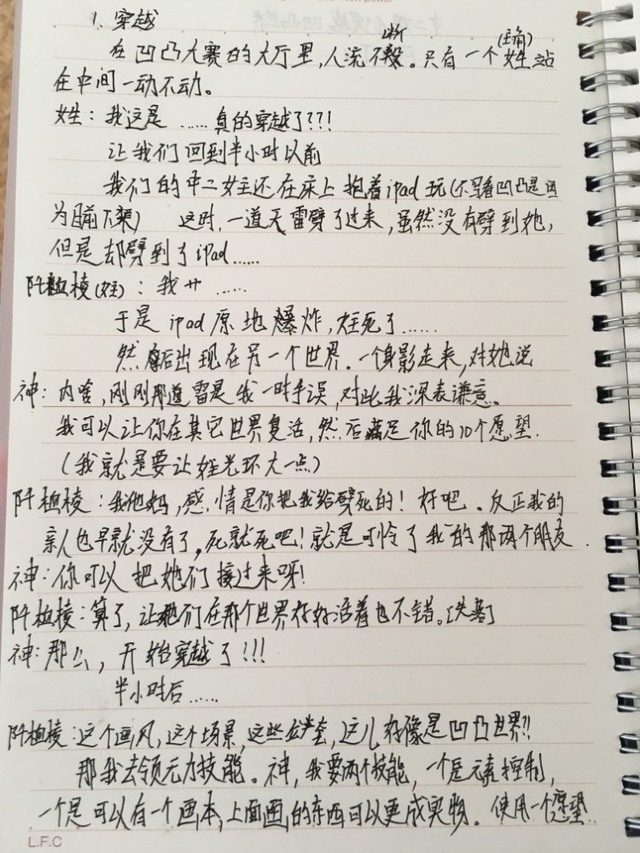 1. 穿越
在凹凸大赛的大厅里,人流不断。只有一个姓(主角)站
在中间一动不动。
姓:我这是……真的穿越了???
让我们回到半小时以前
我们的中二女主还在床上抱着ipad玩(不写看凹凸是因
为目前下架) 这时,一道天雷劈了过来,虽然没有劈到她,
但是却劈到了iPad……
阡植棱(姓):我艹……
于是ipad原地爆炸,姓死了……
然后出现在另一个世界.一个身影走来,对她说
神:内啥,刚刚那道雷是我一时手误,对此我深表谦意。
我可以让你在其它世界复活,然后满足你的10个愿望.
(我就是要让姓光环大一点)
阡植棱:我他妈,感.情是你把我给劈死的!好吧。反正我的
亲人也早就没有了,死就死吧!就是可怜了我的那两个朋友.
神:你可以把她们接过来呀!
阡植棱:算了,让她们在那个世界好好活着也不错。[失落]
神:那么,开始穿越了!!!
半小时后……
阡植棱:这个画风,这个场景,这些套,这儿好像是凹凸世界?!
那我去领元力技能。神,我要两个技能,一个是元素控制,
一个是可以有一个画本,上面画的东西可以变成实物。使用一个愿望.
L.F.C